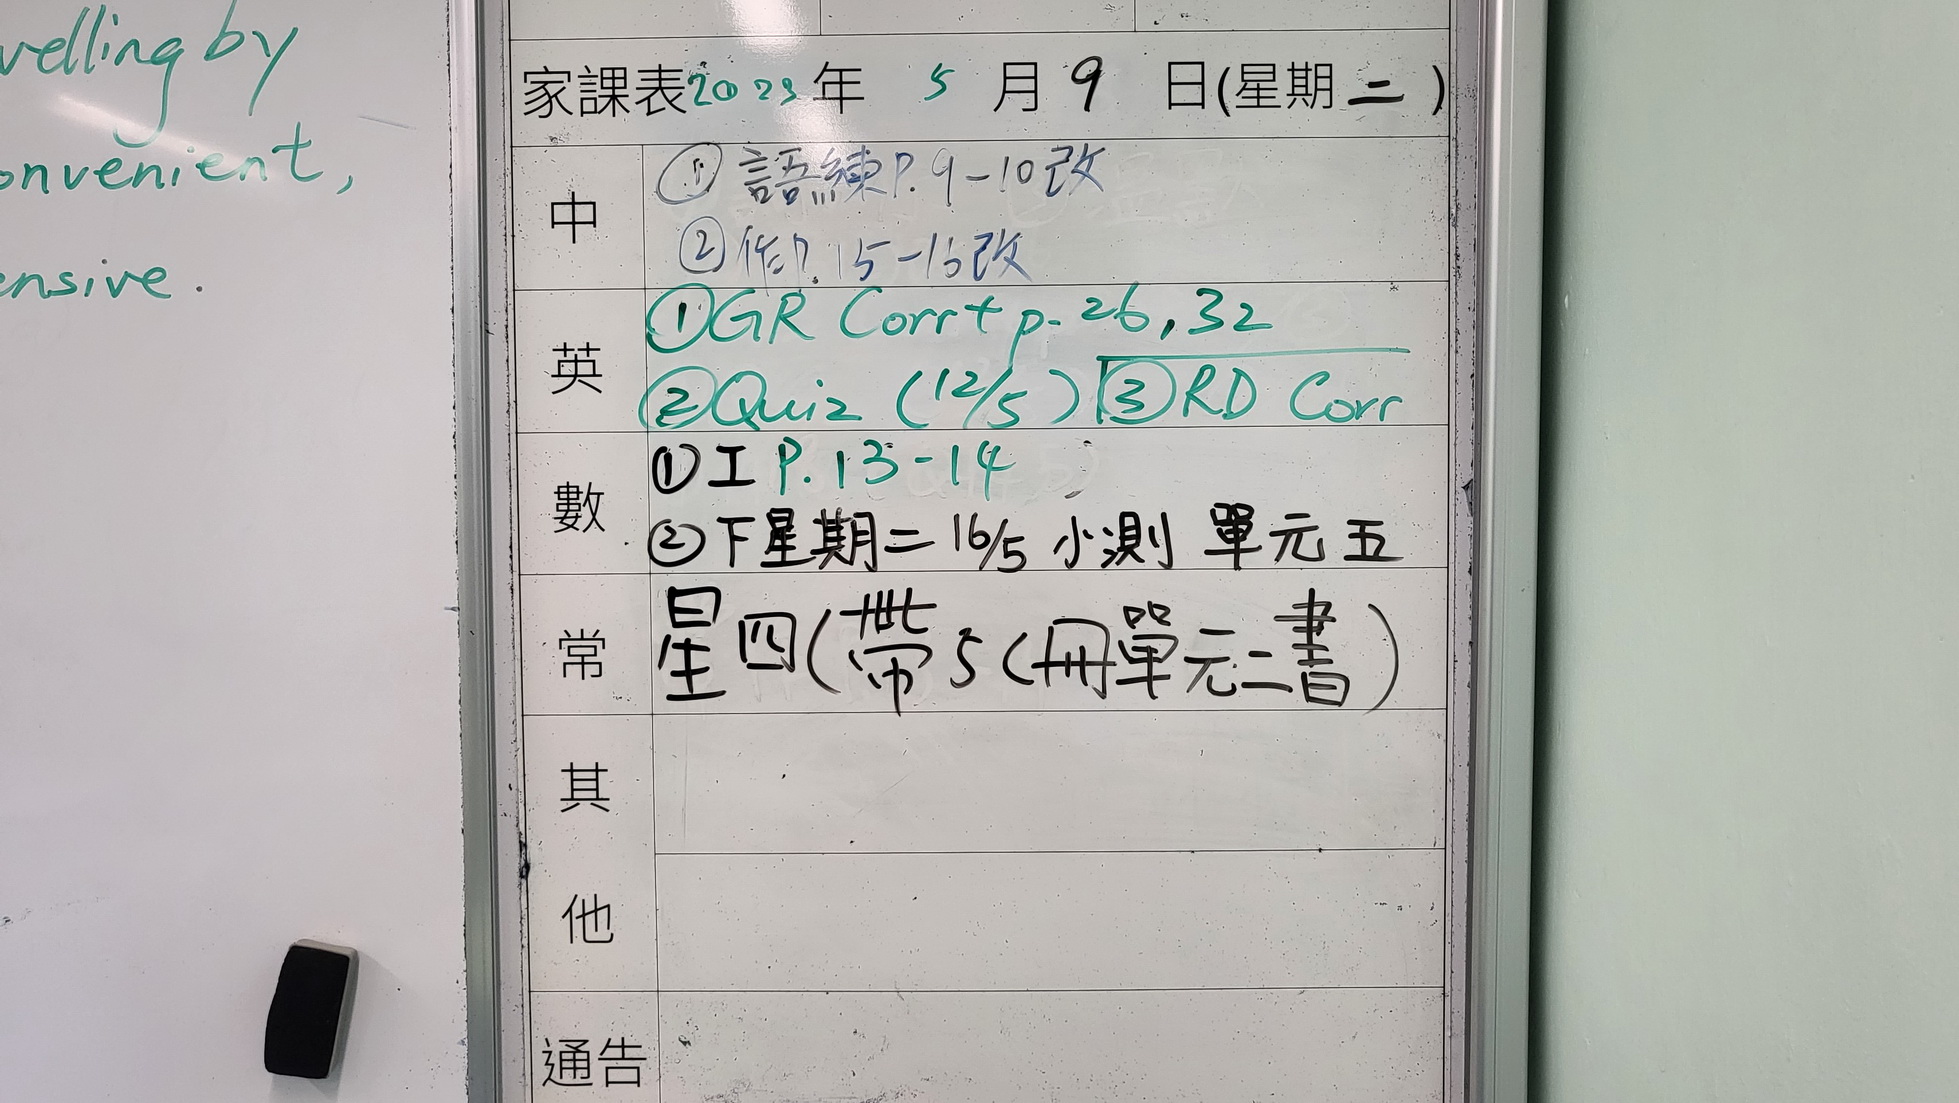 velling by
onvenient,
ensive.
家課表2023年 5月9日(星期二)
中
①語練P.9-10改
②作P.15-16改
英
①GR Corr+ p. 26, 32
②Quiz (12/5) ③RD Corr
數
①工P.13-14
②下星期二16/5 小測 單元五
常
星四(帶5(冊單元二書)
其他
通告